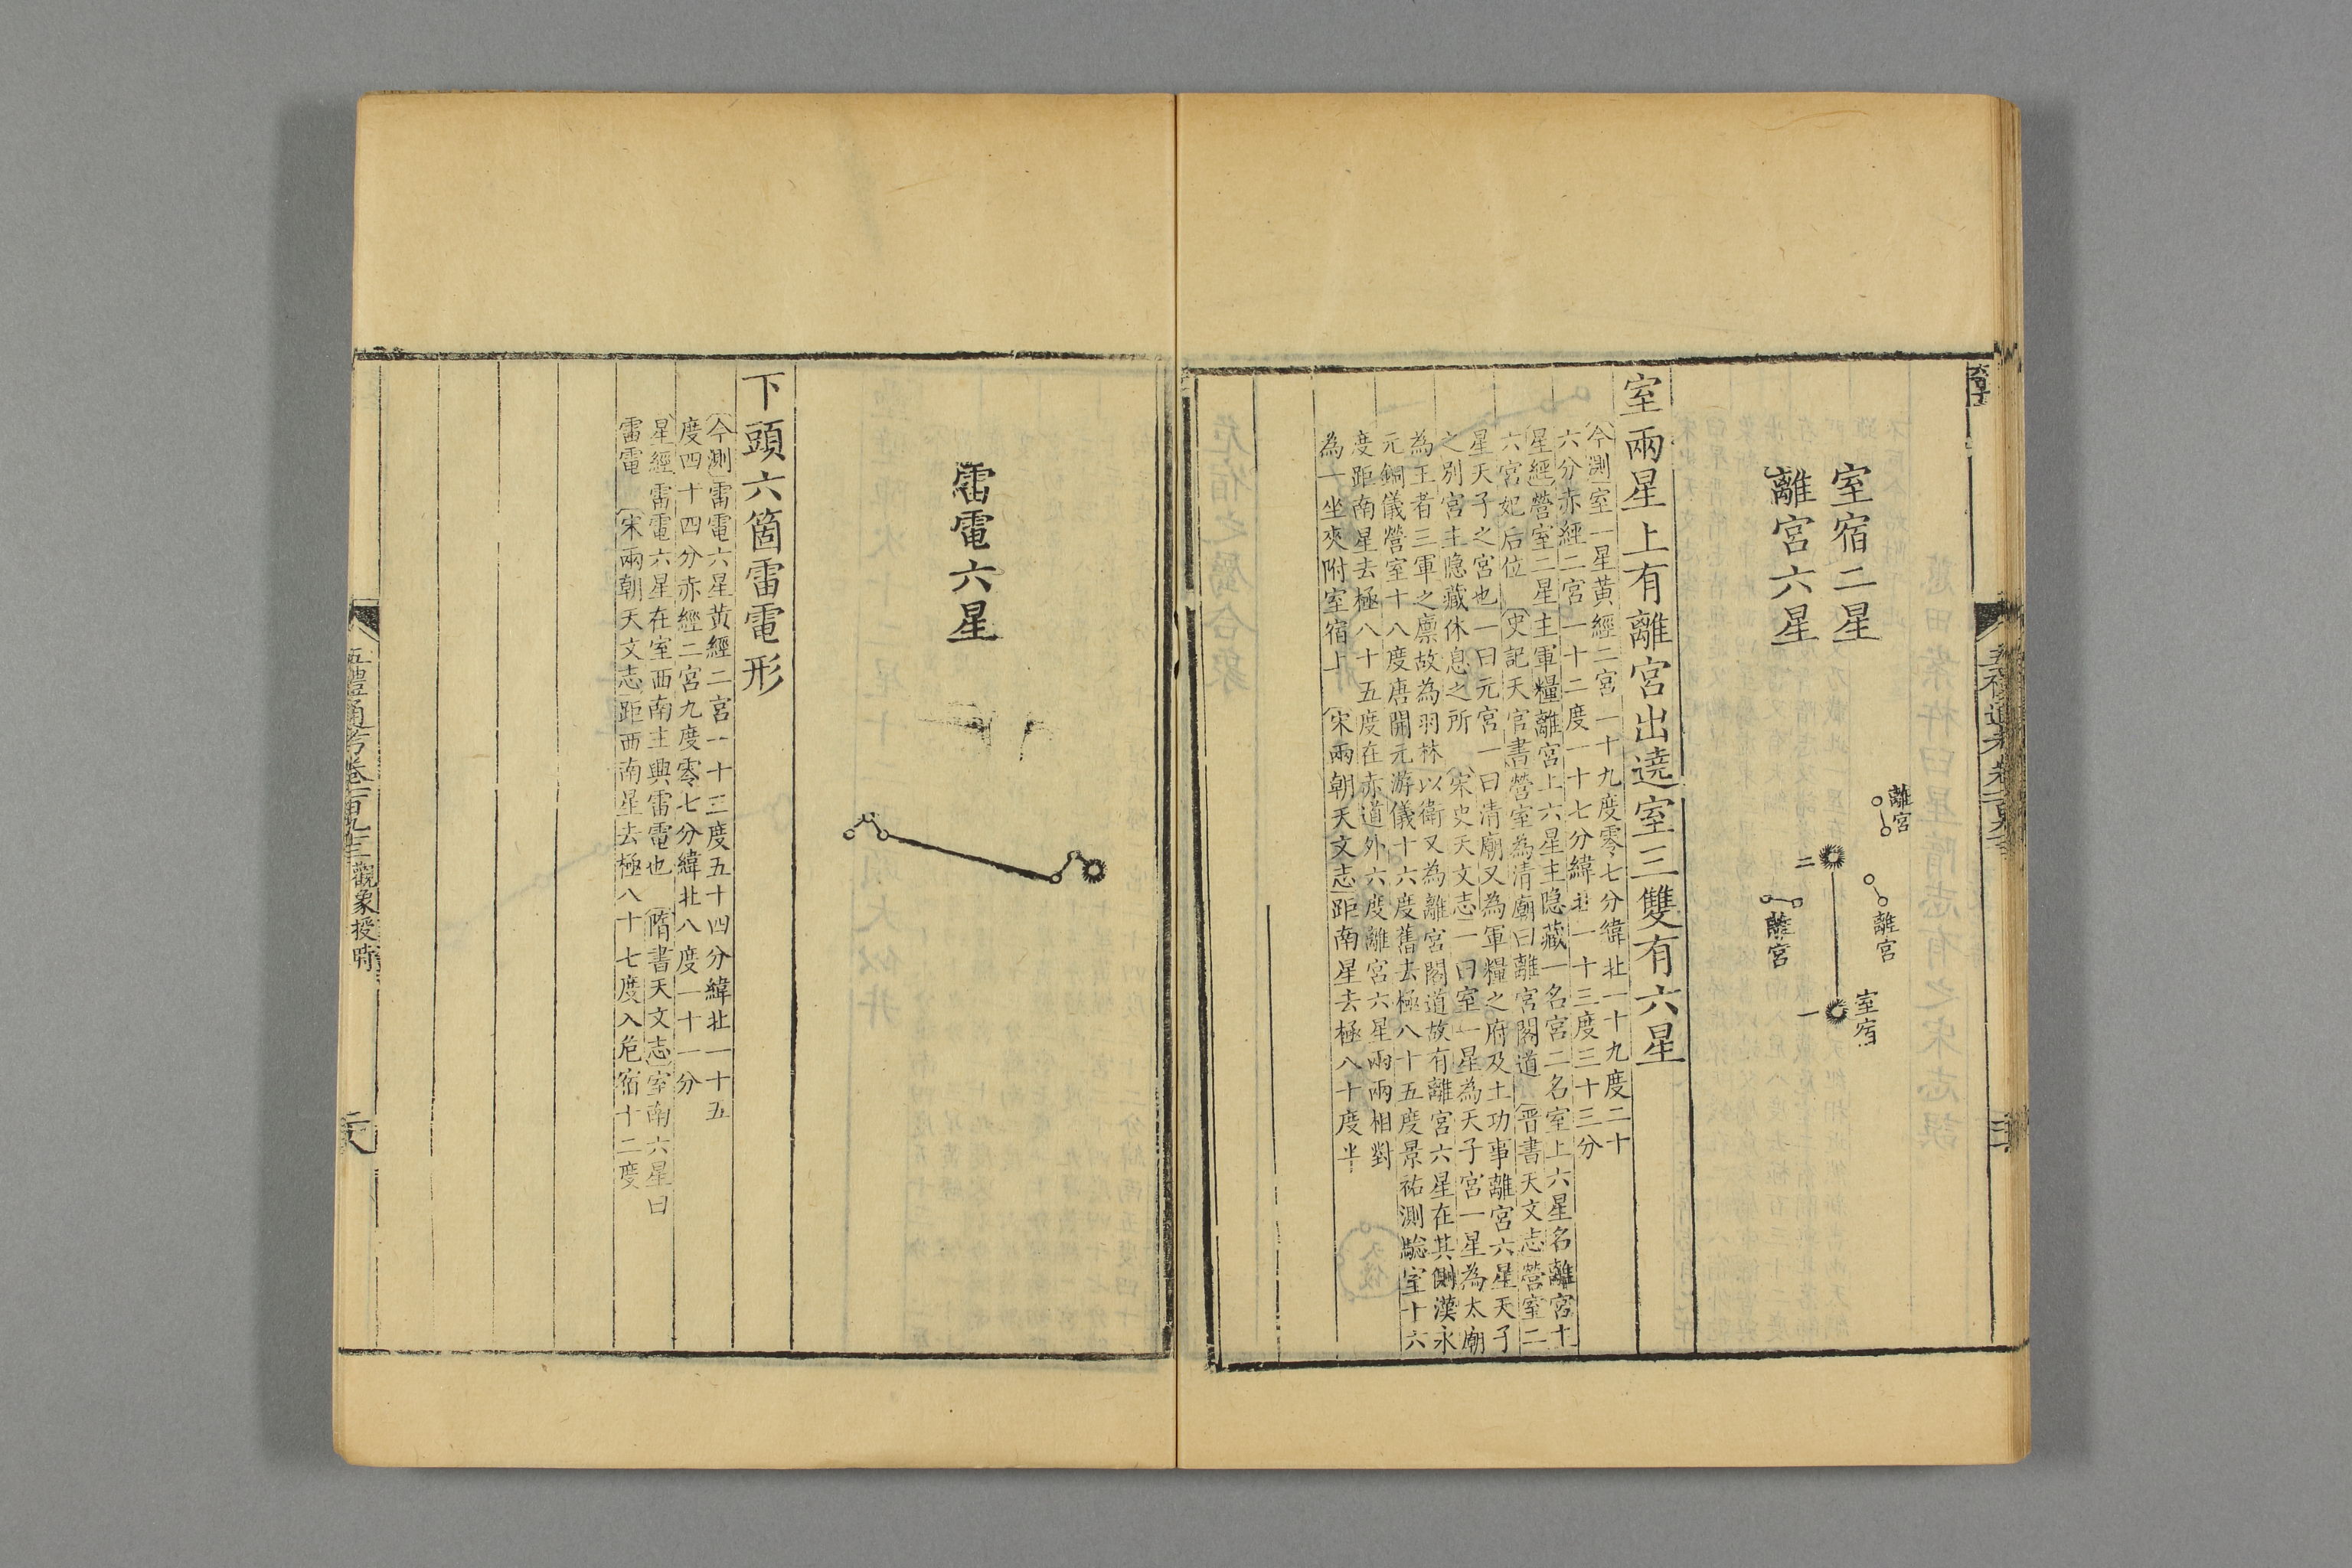 室宿二星
離宮六星
離宮
離宮
二
離宮
室宿
一
室兩星上有離宮出遶室三雙有六星
今測室一星黃經二宮一十九度零七分緯北一十九度二十
六分赤經二宮一十二度一十七分緯北一十三度三十三分
星經營室二星主軍糧離宮上六星主隐藏一名宮二名室上六星名離宮十
六宮妃后位 史記天官書營室為清廟曰離宮閣道 晋書天文志營室二
星天子之宮也一曰元宮一曰清廟又為軍糧之府及土功事離宮六星天子
之別宮主隐藏休息之所 宋史天文志一曰室一星為天子宮一星為太廟
為王者三軍之廪故為羽林以衛又為離宮閣道故有離宮六星在其側漢永
元銅儀營室十八度唐開元游儀十六度舊去極八十五度景祐測驗室十六
度距南星去極八十五度在赤道外六度離宮六星兩兩相對
為一坐夾附室宿上 宋兩朝天文志距南星去極八十度半
雷電六星
下頭六箇雷電形
今測雷電六星黃經二宮一十三度五十四分緯北一十五
度四十四分赤經二宮九度零七分緯北八度一十一分
星經雷電六星在室西南主興雷電也 隋書天文志室南六星曰
雷電 宋兩朝天文志距西南星去極八十七度入危宿十二度
五禮通考卷一百九十三觀象授時